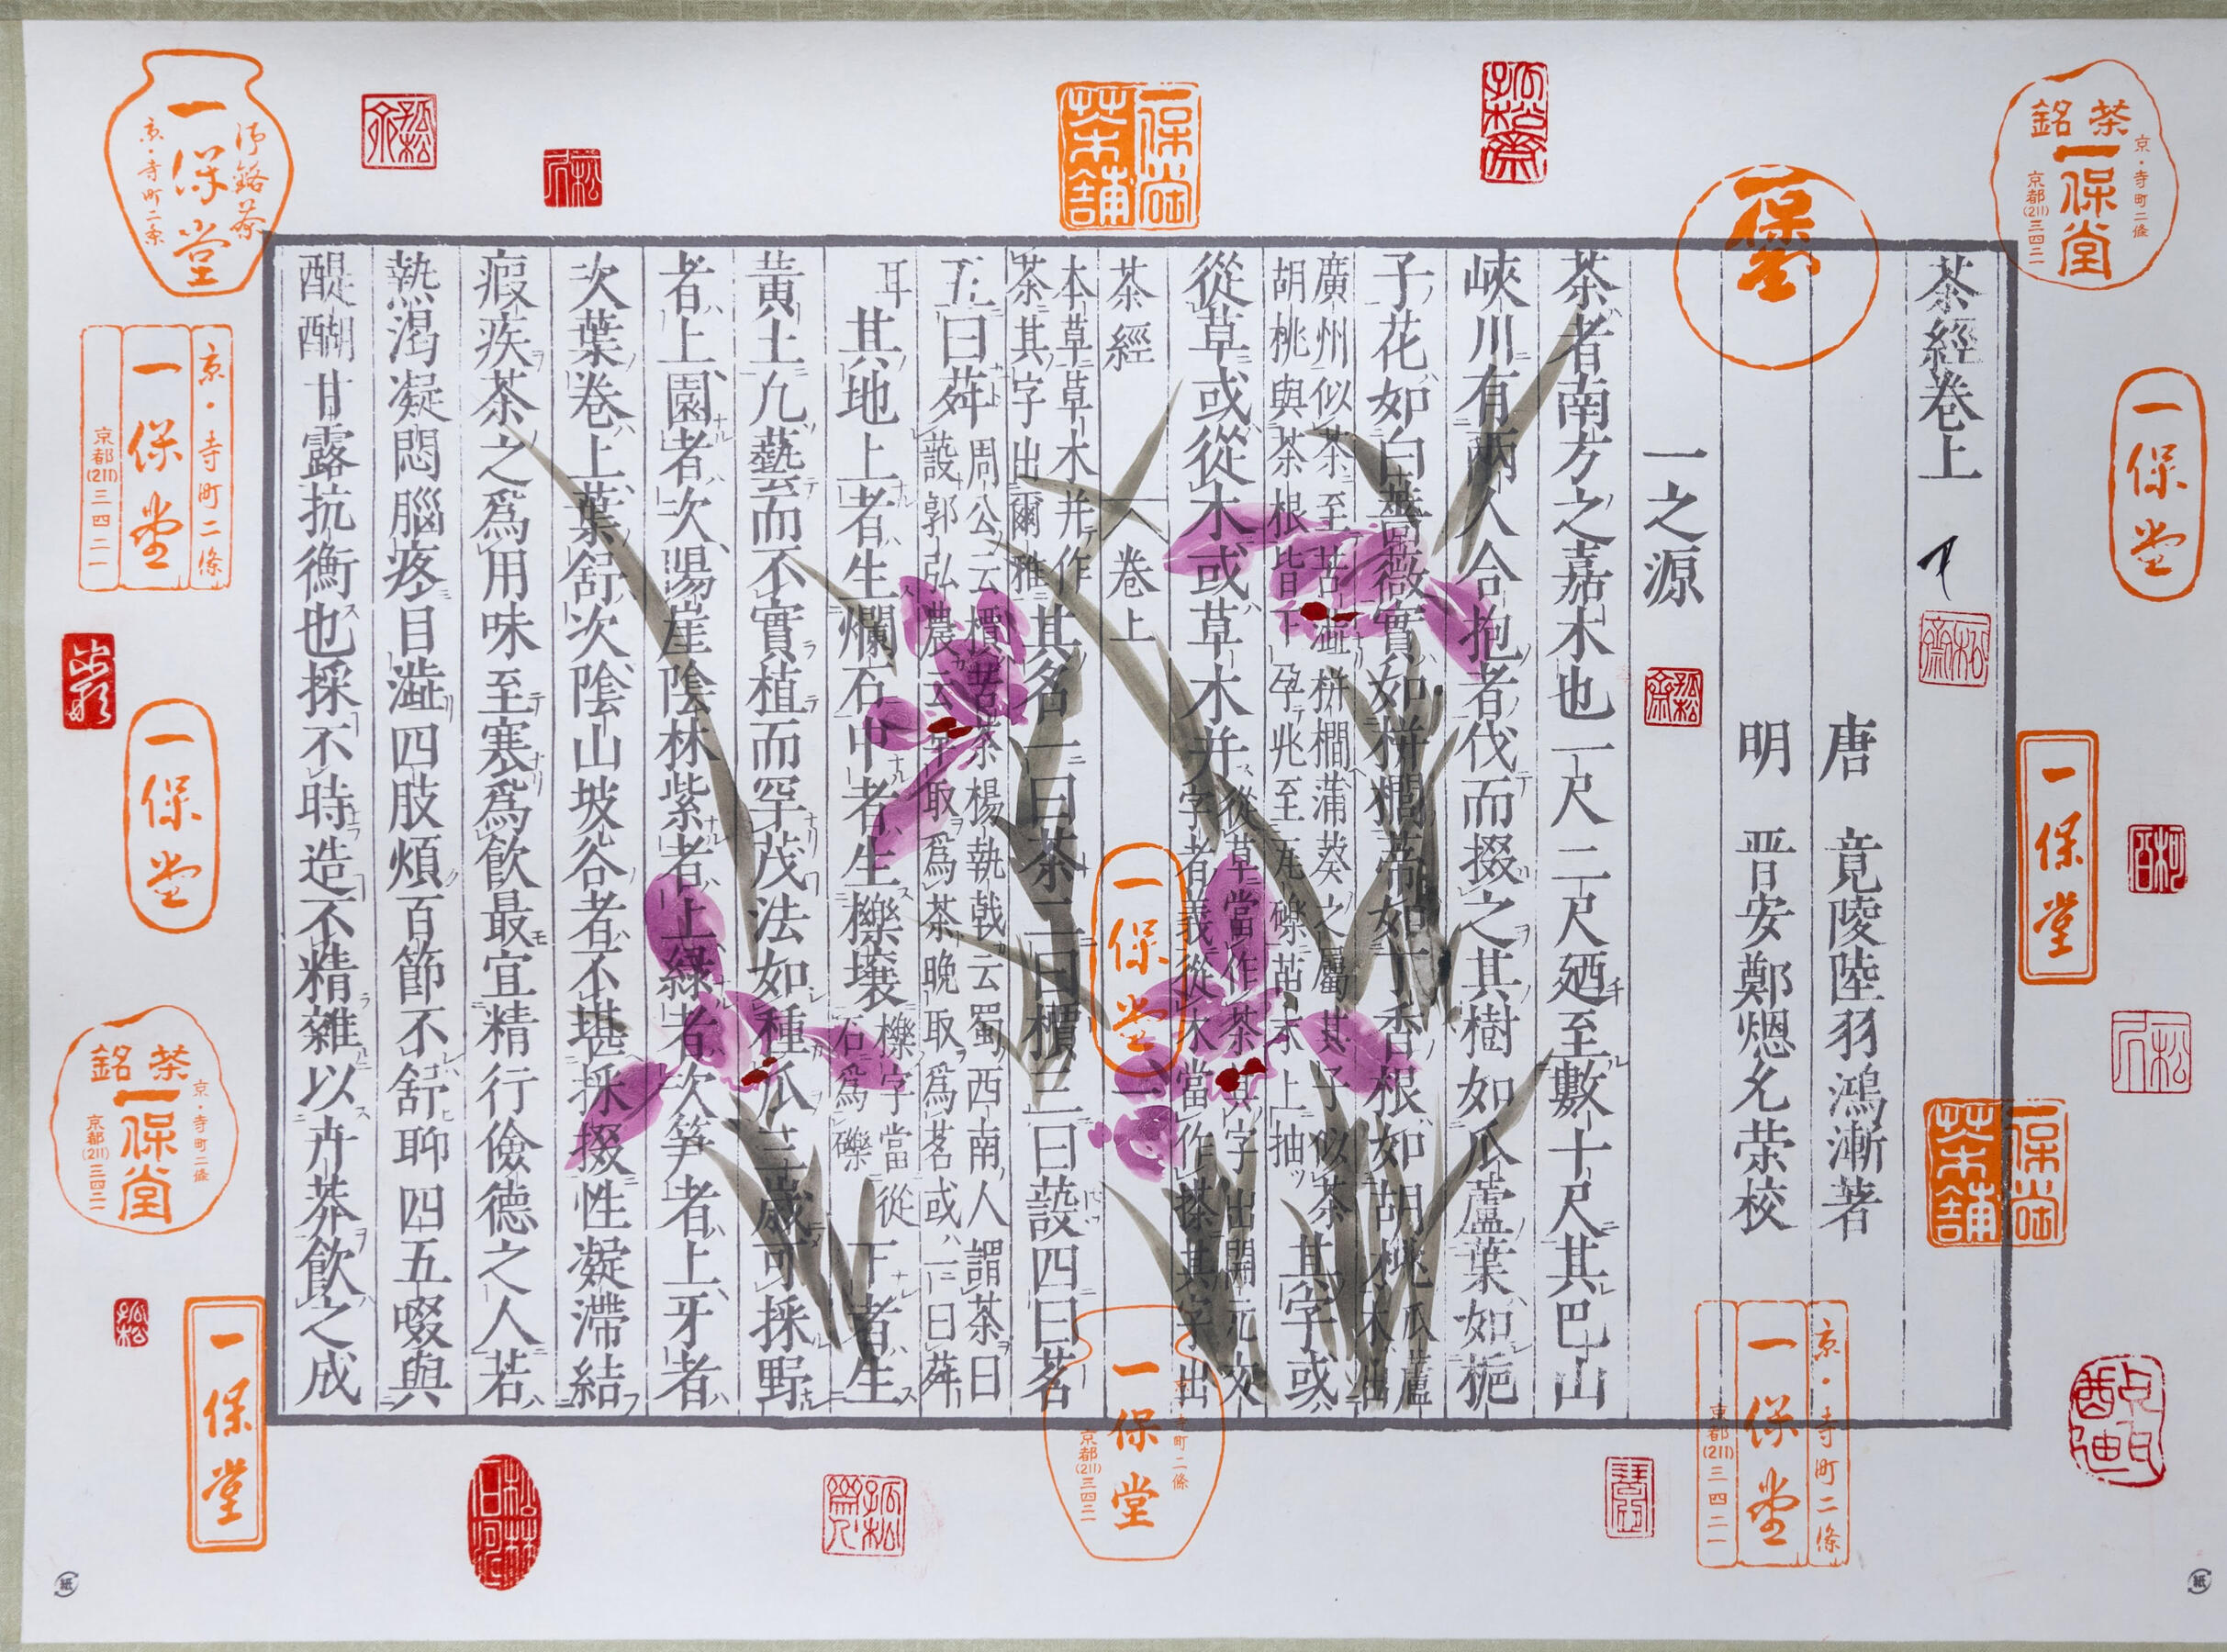 茶經卷上
唐　竟陵陸羽鴻漸著
明　晋安鄭熜允荣校
一之源
茶者南方之嘉木也一尺二尺廼至數十尺其巴山
峽川有兩人合抱者伐而掇之其樹如瓜蘆葉如梔
子花如白薔薇實如栟櫚蒂如丁香根如胡桃瓜蘆木出
廣州似茶至苦澁栟櫚蒲葵之屬其子似茶
胡桃與茶根皆下孕兆至瓦礫苗木上抽其字或
從草或從木或草木并從草當作茶其字出開元文
字者義從木當作㮈其字出
茶經　卷上　一
本草草木并作
茶其字出爾雅其名一曰茶二曰檟三曰蔎四曰茗
五曰荈周公云檟苦茶楊執戟云蜀西南人謂茶曰
蔎郭弘農云早取爲茶晚取爲茗或一曰荈
耳其地上者生爛石中者生櫟壤櫟字當從
石爲礫下者生
黄土凡藝而不實植而罕茂法如種瓜三歲可採野
者上園者次陽崖陰林紫者上緑者次笋者上牙者
次葉卷上葉舒次陰山坡谷者不堪採掇性凝滯結
瘕疾茶之爲用味至寒爲飲最宜精行儉德之人若
熱渇凝悶腦疼目澁四肢煩百節不舒聊四五啜與
醍醐甘露抗衡也採不時造不精雜以卉莽飲之成
一保堂
御銘茶
京・寺町二条
一保堂茶舖
一保堂
銘茶
一保堂
京・寺町二條
京都(211)三四二一
京・寺町二條
一保堂
京都(211)三四二一
一保堂
一保堂
一保堂
一保堂
銘茶
一保堂
京・寺町二條
京都(211)三四二一
一保堂茶舖
一保堂
一保堂
京・寺町二條
京都(211)三四二一
京・寺町二條
一保堂
京都(211)三四二一
紙
紙